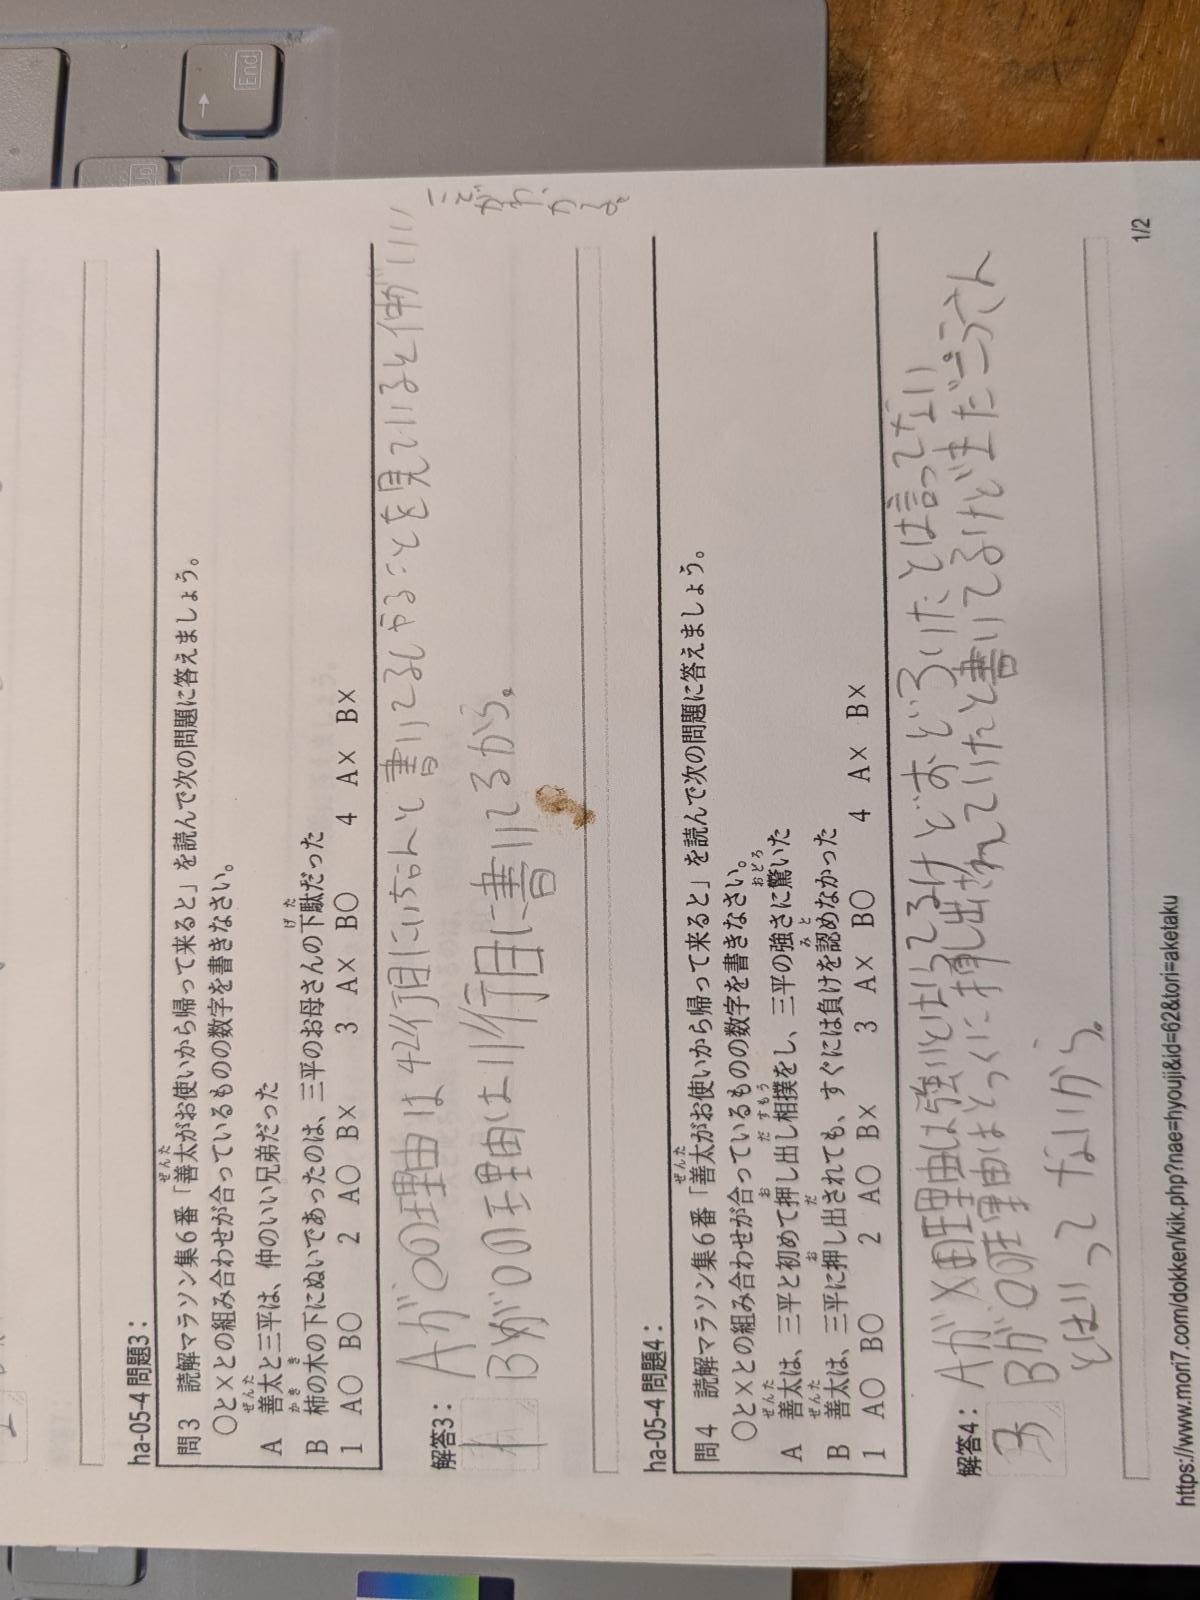 End
ha-05-4 問題3：
問3　読解マラソン集6番「善太がお使いから帰って来ると」を読んで次の問題に答えましょう。
ぜんた
〇と×との組み合わせが合っているものの数字を書きなさい。
A　善太と三平は、仲のいい兄弟だった
ぜんた
B　柿の木の下にぬいであったのは、三平のお母さんの下駄だった
かき　き　げた
1　A〇　B〇　2　A〇　B×　3　A×　B〇　4　A×　B×
解答3：
1
Aが〇の理由は、42行目にいちろんと書いてるしやることを見ていると仲がいい
ことがわかる。
Bが〇の理由は11行目に書いてるから。
ha-05-4 問題4：
問4　読解マラソン集6番「善太がお使いから帰って来ると」を読んで次の問題に答えましょう。
ぜんた
〇と×との組み合わせが合っているものの数字を書きなさい。
A　善太は、三平と初めて押し出し相撲をし、三平の強さに驚いた
ぜんた　お　だ　すもう　おどろ
B　善太は、三平に押し出されても、すぐには負けを認めなかった
ぜんた　お　だ　みと
1　A〇　B〇　2　A〇　B×　3　A×　B〇　4　A×　B×
解答4：
3
Aが×理由は強いとは言ってるけどおどろいたとは言ってない
Bが〇の理由はとっくに押し出されていたと書いてるけどまだこうさん
とはいってないから。
1/2
https://www.mori7.com/dokken/kik.php?nae=hyouji&id=62&tori=aketaku